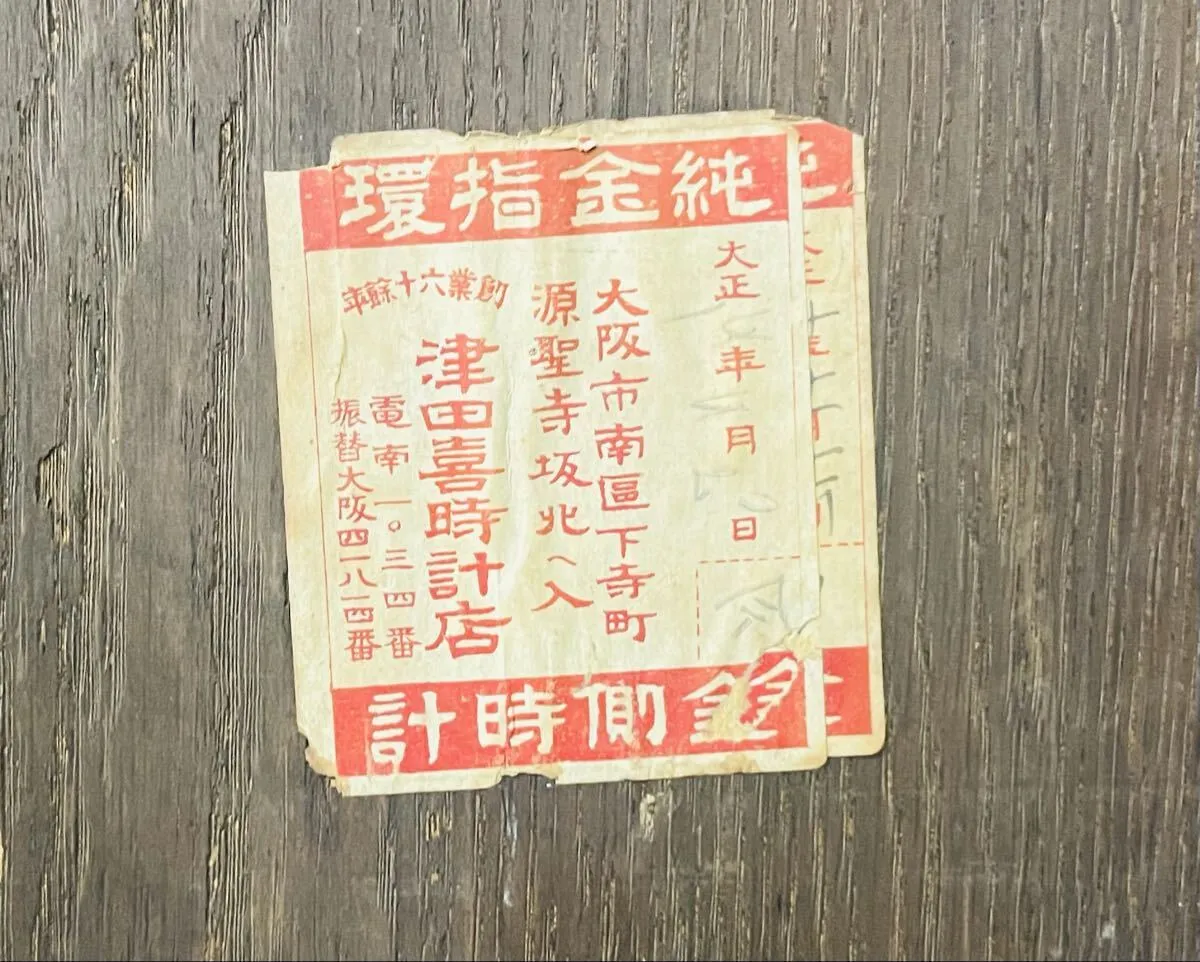 純金指環
大正 年 月 日
大阪市南區下寺町
源聖寺坂北へ入
創業六十餘年
津田喜時計店
電南一〇三四番
振替大阪四一八一四番
金側時計